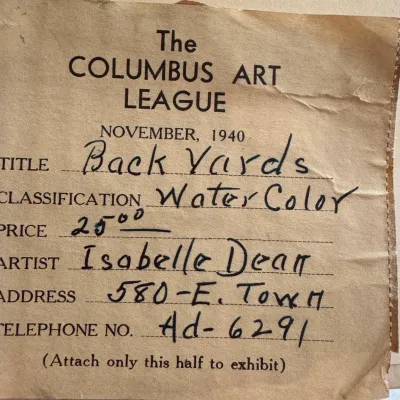 The
COLUMBUS ART
LEAGUE
NOVEMBER, 1940
TITLE Back Yards
CLASSIFICATION Water Color
PRICE 25⁰⁰
ARTIST Isabelle Dean
ADDRESS 580-E. Town
TELEPHONE NO. Ad-6291
(Attach only this half to exhibit)